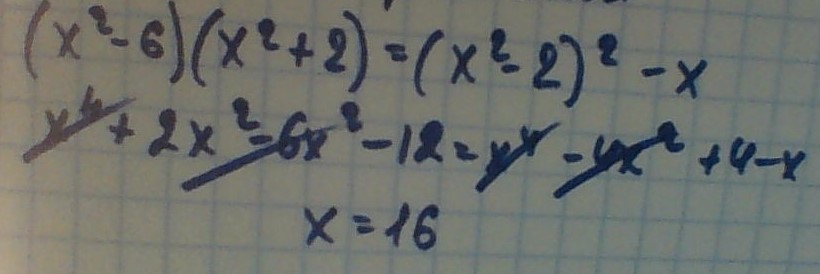 (x²-6)(x²+2)=(x²-2)²-x
x⁴+2x²-6x²-12=x⁴-4x²+4-x
x=16